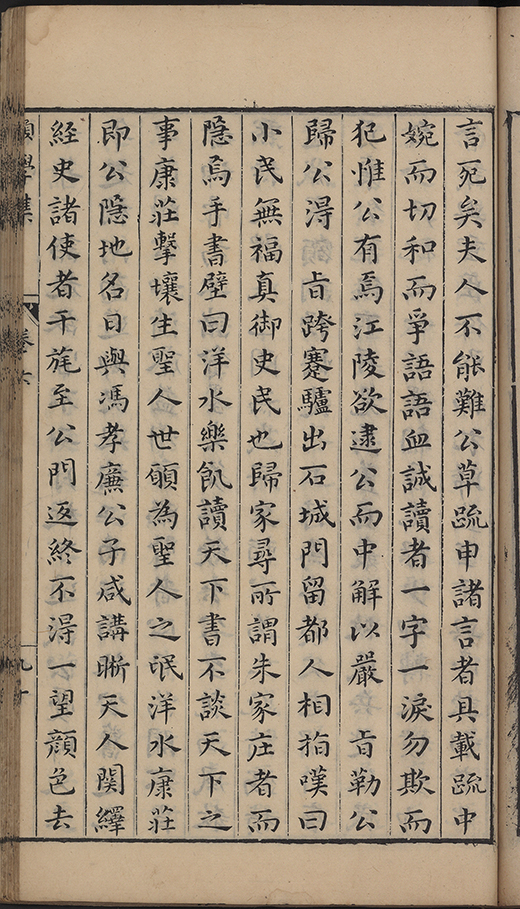 言死矣夫人不能難公草疏申諸言者具載疏中
婉而切和而爭語語血誠讀者一字一淚勿欺而
犯惟公有焉江陵欲逮公而中解以嚴 旨勒公
歸公淂 旨跨蹇驢出石城門留都人相指嘆曰
小民無福真御史民也歸家尋所謂朱家庄者而
隠焉手書壁曰洋水樂飢讀天下書不談天下之
事康莊擊壤生聖人世願為聖人之氓洋水康莊
即公隠地名日與馮孝廉公子咸講晰天人関繹
經史諸使者干旄至公門返終不淂一望顔色去
學集 卷六